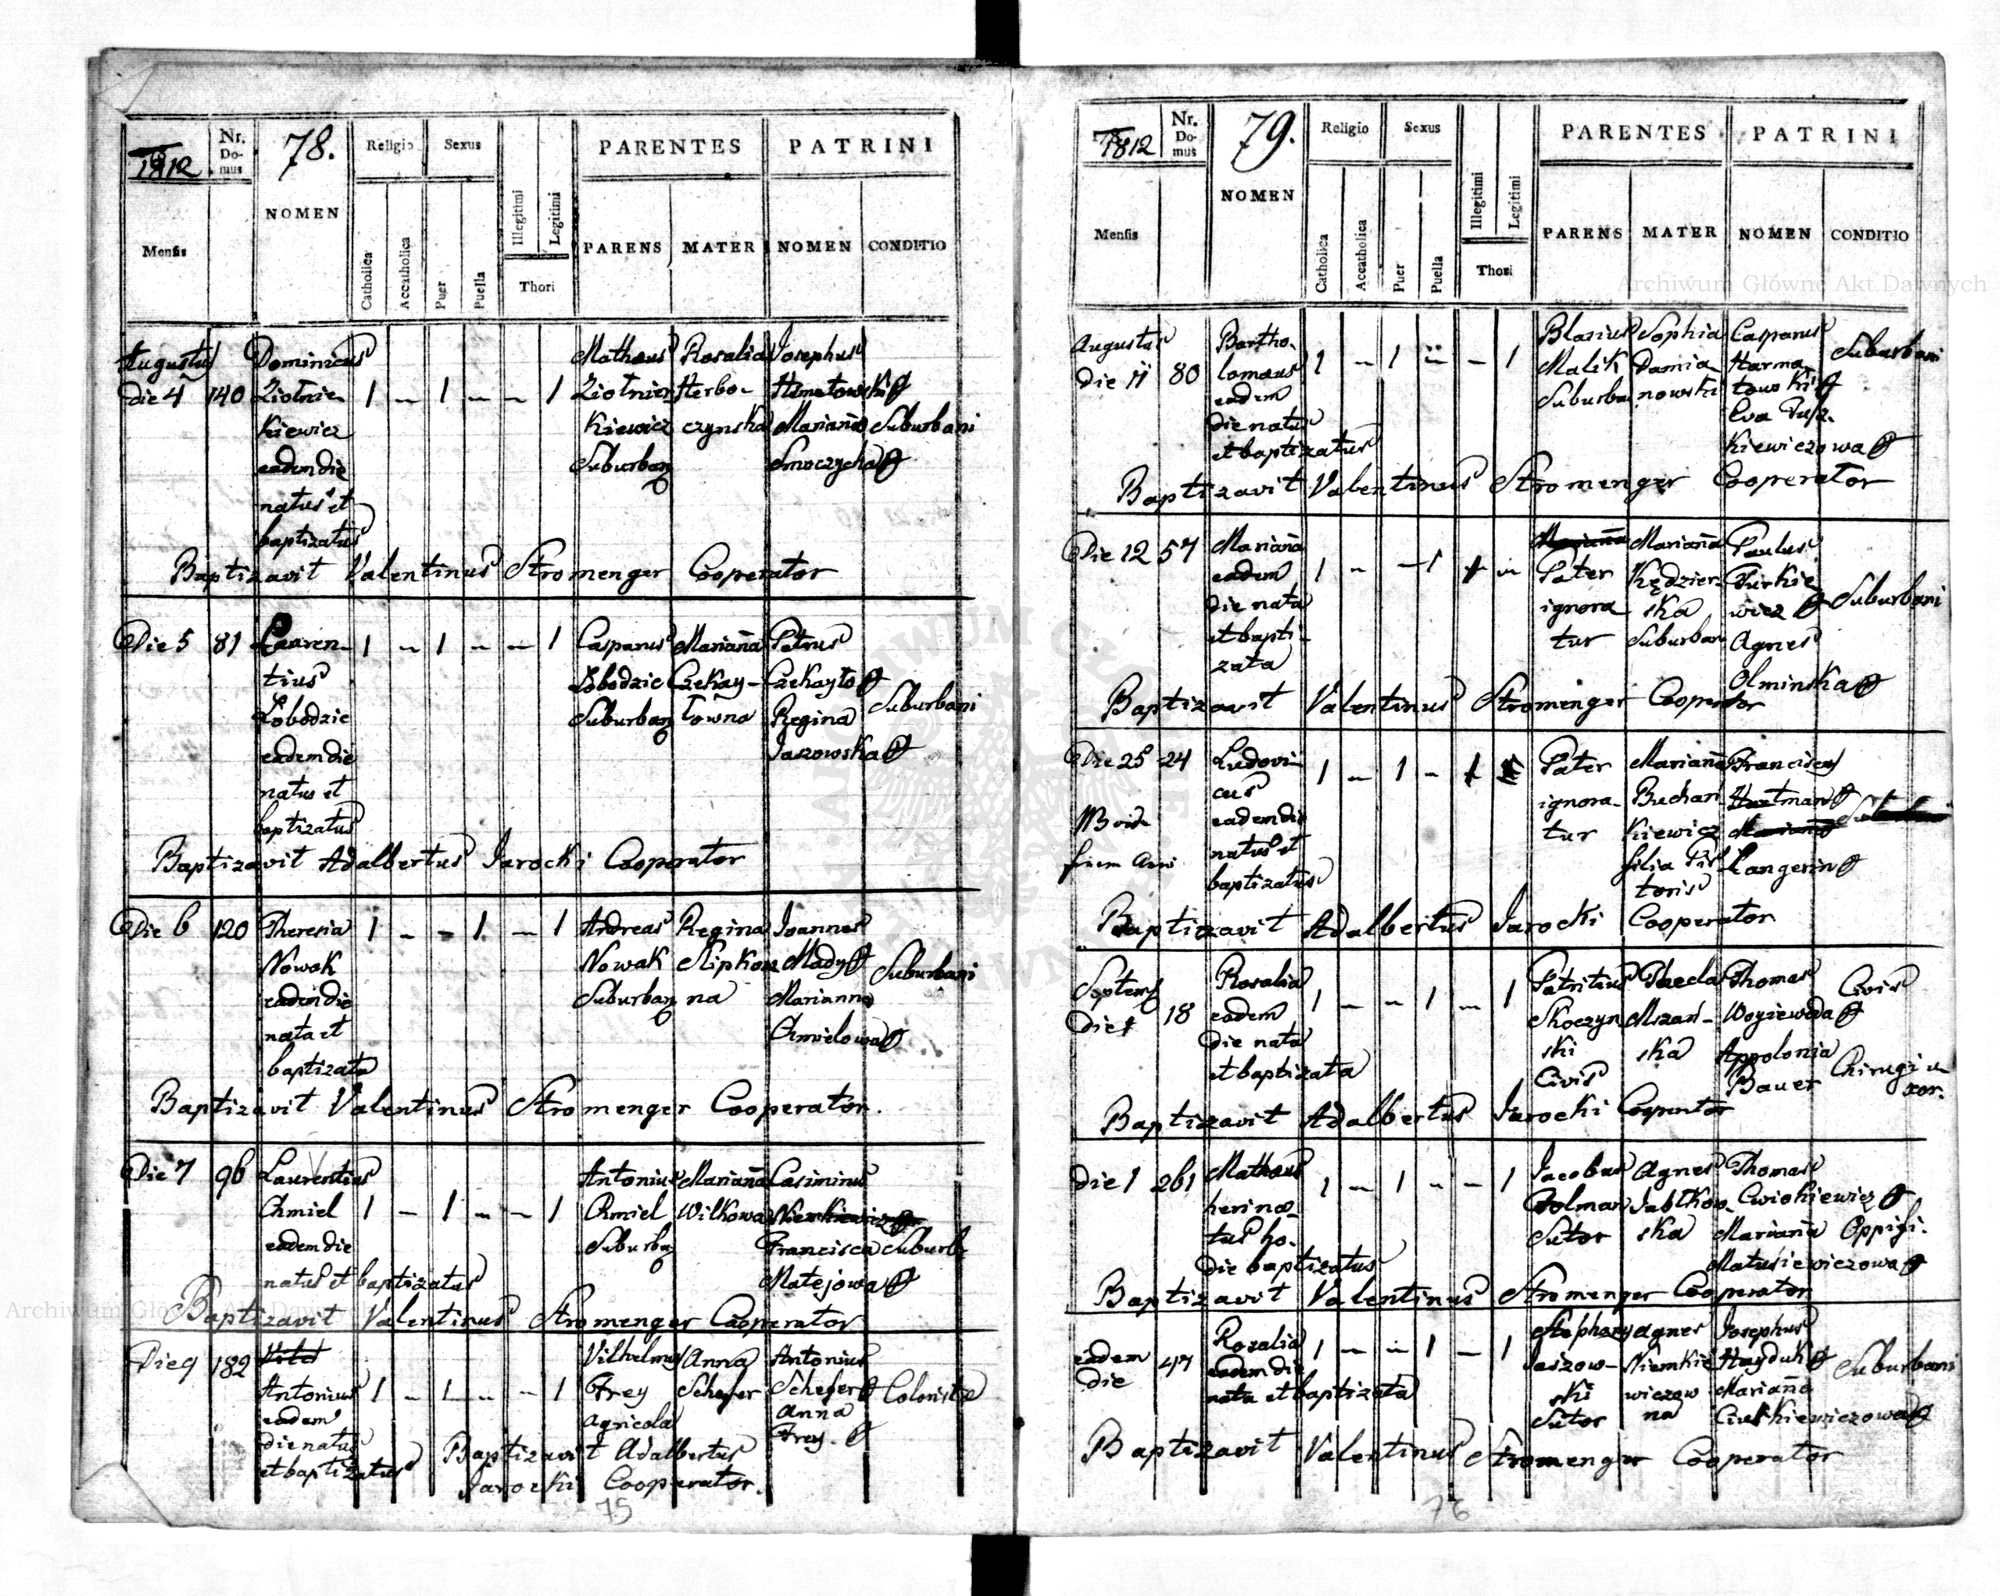 1812
Nr. Domus
78.
NOMEN
Religio
Sexus
PARENTES
PATRINI
Mensis
Catholica
Accatholica
Puer
Puella
Illegitimi
Legitimi
Thori
PARENS
MATER
NOMEN
CONDITIO
Augustus Dominicus Matheus Rosalia Josephus
Die 4 140 1 – 1 – – 1 Herbo-
Kiewicz Kiewicz czynska Marianna Suburbani
eadem die Suburban
natus et
baptizatus
Baptizavit Valentinus Stromenger Cooperator
Die 5 81 Lauren- 1 – 1 – – 1 Casparus Marianna Petrus
tius Łobodzic Czekay- Czekayło
Łobodzic Suburban łowna Regina Suburbani
eadem die Jaszowska
natus et
baptizatus
Baptizavit Adalbertus Jarocki Cooperator
Die 6 120 Theresia 1 – – 1 – 1 Andreas Regina Joannes
Nowak Nowak Slipkow Mady Suburbani
eadem die Suburban na Marianna
nata et Chmielowa
baptizata
Baptizavit Valentinus Stromenger Cooperator.
Die 7 96 Laurentius Antonius Marianna Casimirus
Chmiel 1 – 1 – – 1 Chmiel Wilkowa
eadem die Suburban Francisca Suburb
natus et baptizatus Matejowa
Baptizavit Valentinus Stromenger Cooperator
Die 9 182 Vilhelmus Anna Antonius
Antonius 1 – 1 – – 1 Frey Schefer Schefer Colonistæ
eadem Agricola Anna
die natus Frey.
et baptizatus Baptizavit Adalbertus
Jarocki Cooperator.
75
1812
Nr. Domus
79.
NOMEN
Religio
Sexus
PARENTES
PATRINI
Mensis
Catholica
Accatholica
Puer
Puella
Illegitimi
Legitimi
Thori
PARENS
MATER
NOMEN
CONDITIO
Archiwum Główne Akt Dawnych
Augustus Bartho- Blasius Sophia Casparus
Die 11 80 lomæus 1 – 1 – – 1 Malik Damia- Harma- Suburbani
eadem Suburban nowski towski
die natus Eva
et baptizatus Kiewiczowa
Baptizavit Valentinus Stromenger Cooperator
Die 12 57 Marianna Marianna Paulus
eadem 1 – – 1 Pater Kędzier- Turkie-
die nata ignora ska wicz Suburbani
et bapti- tur Suburban Agnes
zata Olminska
Baptizavit Valentinus Stromenger Cooperator
Die 25 24 Ludovi- 1 – 1 – Pater Marianna Franciscus
cus ignora- Buchan Hartman
eadem die tur Kiewicz
natus et filia Pis Langerin
baptizatus toris
Baptizavit Adalbertus Jarocki Cooperator
Septemb Rosalia Patritius Thecla Thomas Civis
Die 1 18 eadem 1 – – 1 – 1 Skoczyn Mszań- Woyiewoda
die nata ski ska Appolonia Chirugi u-
et baptizata Civis Bauer xor.
Baptizavit Adalbertus Jarocki Cooperator
Die 1 261 Mathæus 1 – 1 – – 1 Jacobus Agnes Thomas
heri na- Jabłkow- Cwiokiewicz
tus ho- Sutor ska Marianna Oppihi.
die baptizatus Matusiewiczowa
Baptizavit Valentinus Stromenger Cooperator
eadem 47 Rozalia 1 – – 1 – 1 Stephany Agnes Josephus
Die eadem die Jaszow- Niemkie Hayduk Suburbani
nata et baptizata ski wiczow Marianna
Sutor na
Baptizavit Valentinus Stromenger Cooperator
76
Archiwum Główne Akt Dawnych